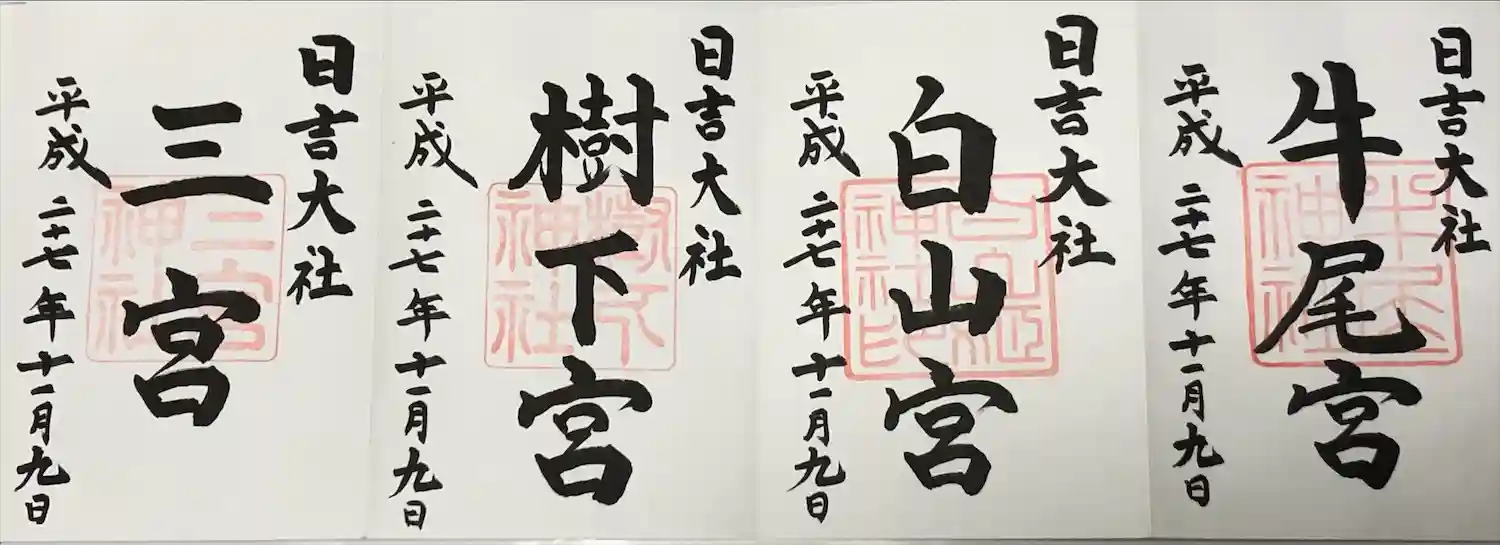 日吉大社
牛尾宮
平成二十七年十一月九日
日吉大社
白山宮
平成二十七年十一月九日
日吉大社
樹下宮
平成二十七年十一月九日
日吉大社
三宮
平成二十七年十一月九日
三宮
神社
樹下
神社